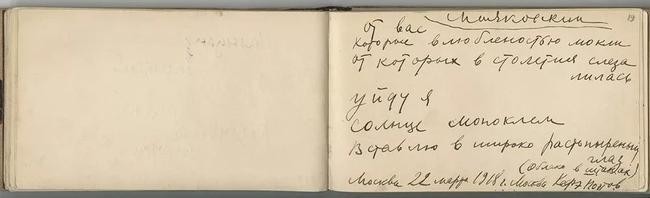 19
Маяковский
от вас
которые влюбленостью мокли
от которых в столетия слеза
лилась
уйду я
солнце моноклем
вставлю в широко растопыреный
глаз
(Облако в штанах)
Москва 22 марта 1918 г. Москва Кафэ Поэтов